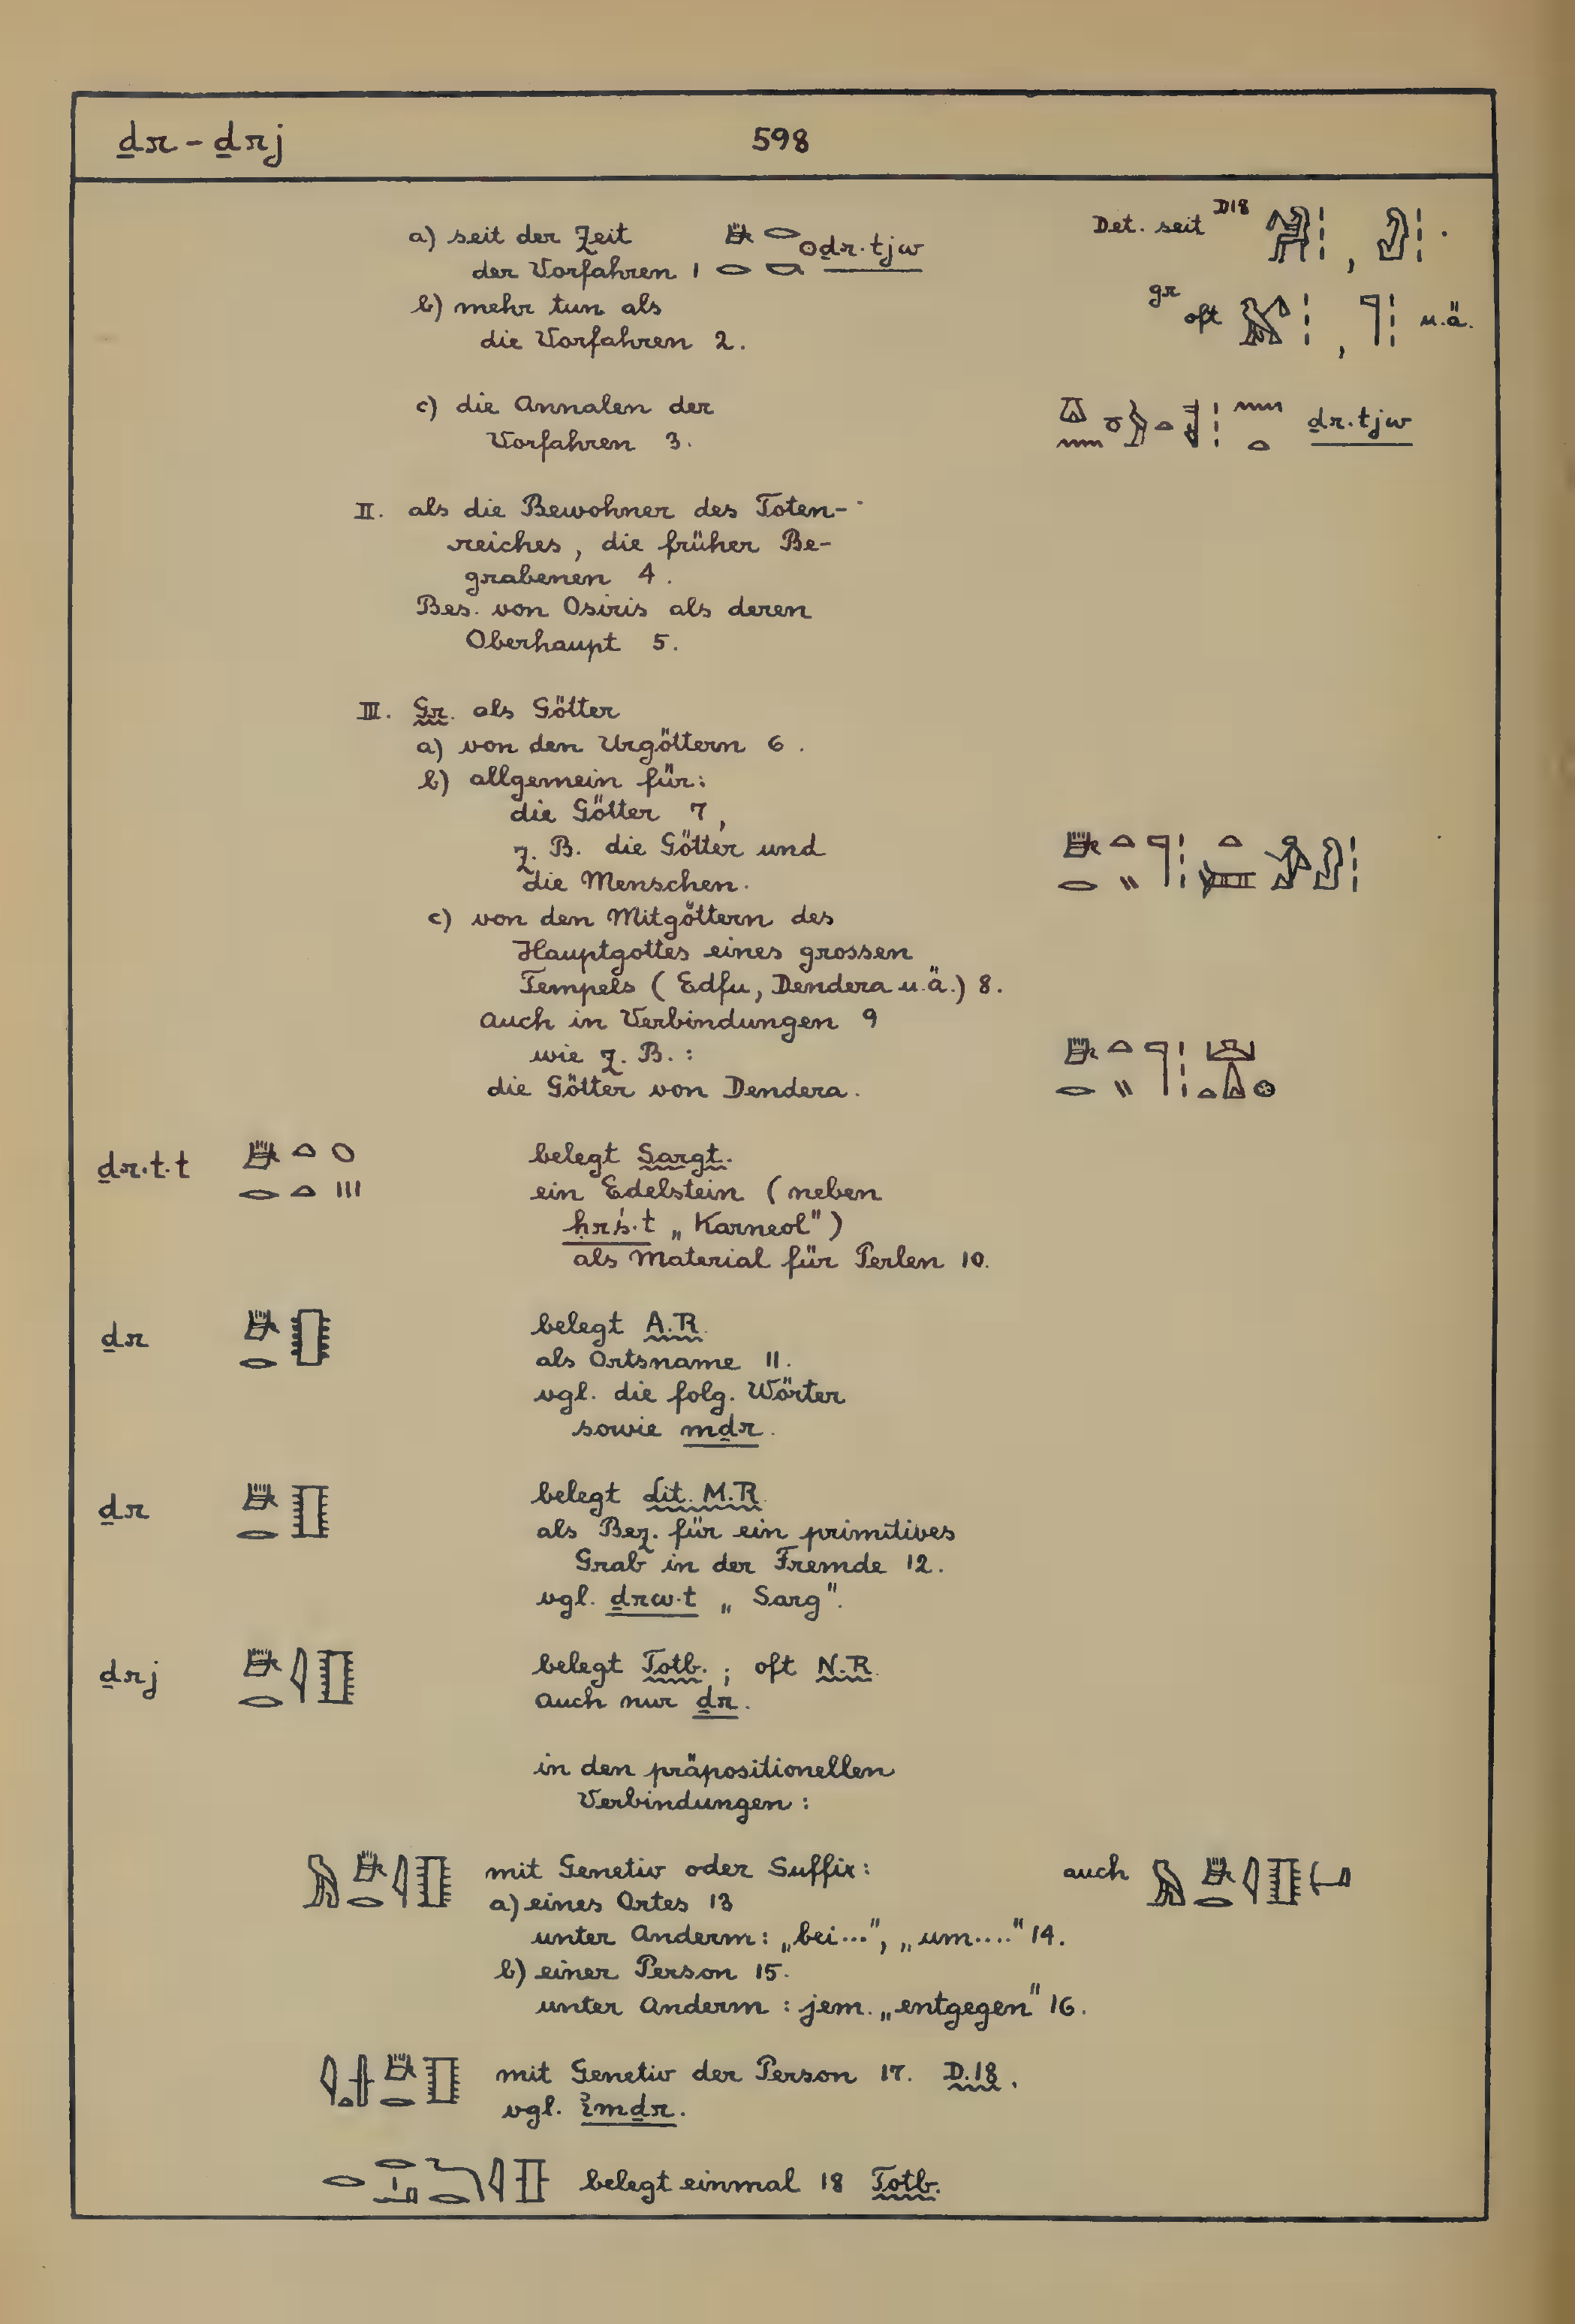 ḏr - ḏrj 598
a) seit der Zeit ḏr.tjw
der Vorfahren 1
Det. seit D18
b) mehr tun als
die Vorfahren 2.
gr oft , u.ä.
c) die Annalen der
Vorfahren 3. ḏr.tjw
II. als die Bewohner des Toten-
reiches, die früher Be-
grabenen 4.
Bes. von Osiris als deren
Oberhaupt 5.
III. Gr. als Götter
a) von den Urgöttern 6.
b) allgemein für:
die Götter 7,
z. B. die Götter und
die Menschen.
c) von den Mitgöttern des
Hauptgottes eines grossen
Tempels (Edfu, Dendera u.ä.) 8.
auch in Verbindungen 9
wie z. B.:
die Götter von Dendera.
ḏr.t.t belegt Sargt.
ein Edelstein (neben
ḥrś.t „Karneol")
als Material für Perlen 10.
ḏr belegt A.R.
als Ortsname 11.
vgl. die folg. Wörter
sowie mḏr.
ḏr belegt Lit. M.R.
als Bez. für ein primitives
Grab in der Fremde 12.
vgl. ḏrw.t „Sarg".
ḏrj belegt Totb.; oft N.R.
auch nur ḏr.
in den präpositionellen
Verbindungen:
mit Genetiv oder Suffix: auch
a) eines Ortes 13
unter Anderm: „bei...", „um...." 14.
b) einer Person 15.
unter Anderm: jem. „entgegen" 16.
mit Genetiv der Person 17. D.18.
vgl. ꜣmḏr.
belegt einmal 18 Totb.